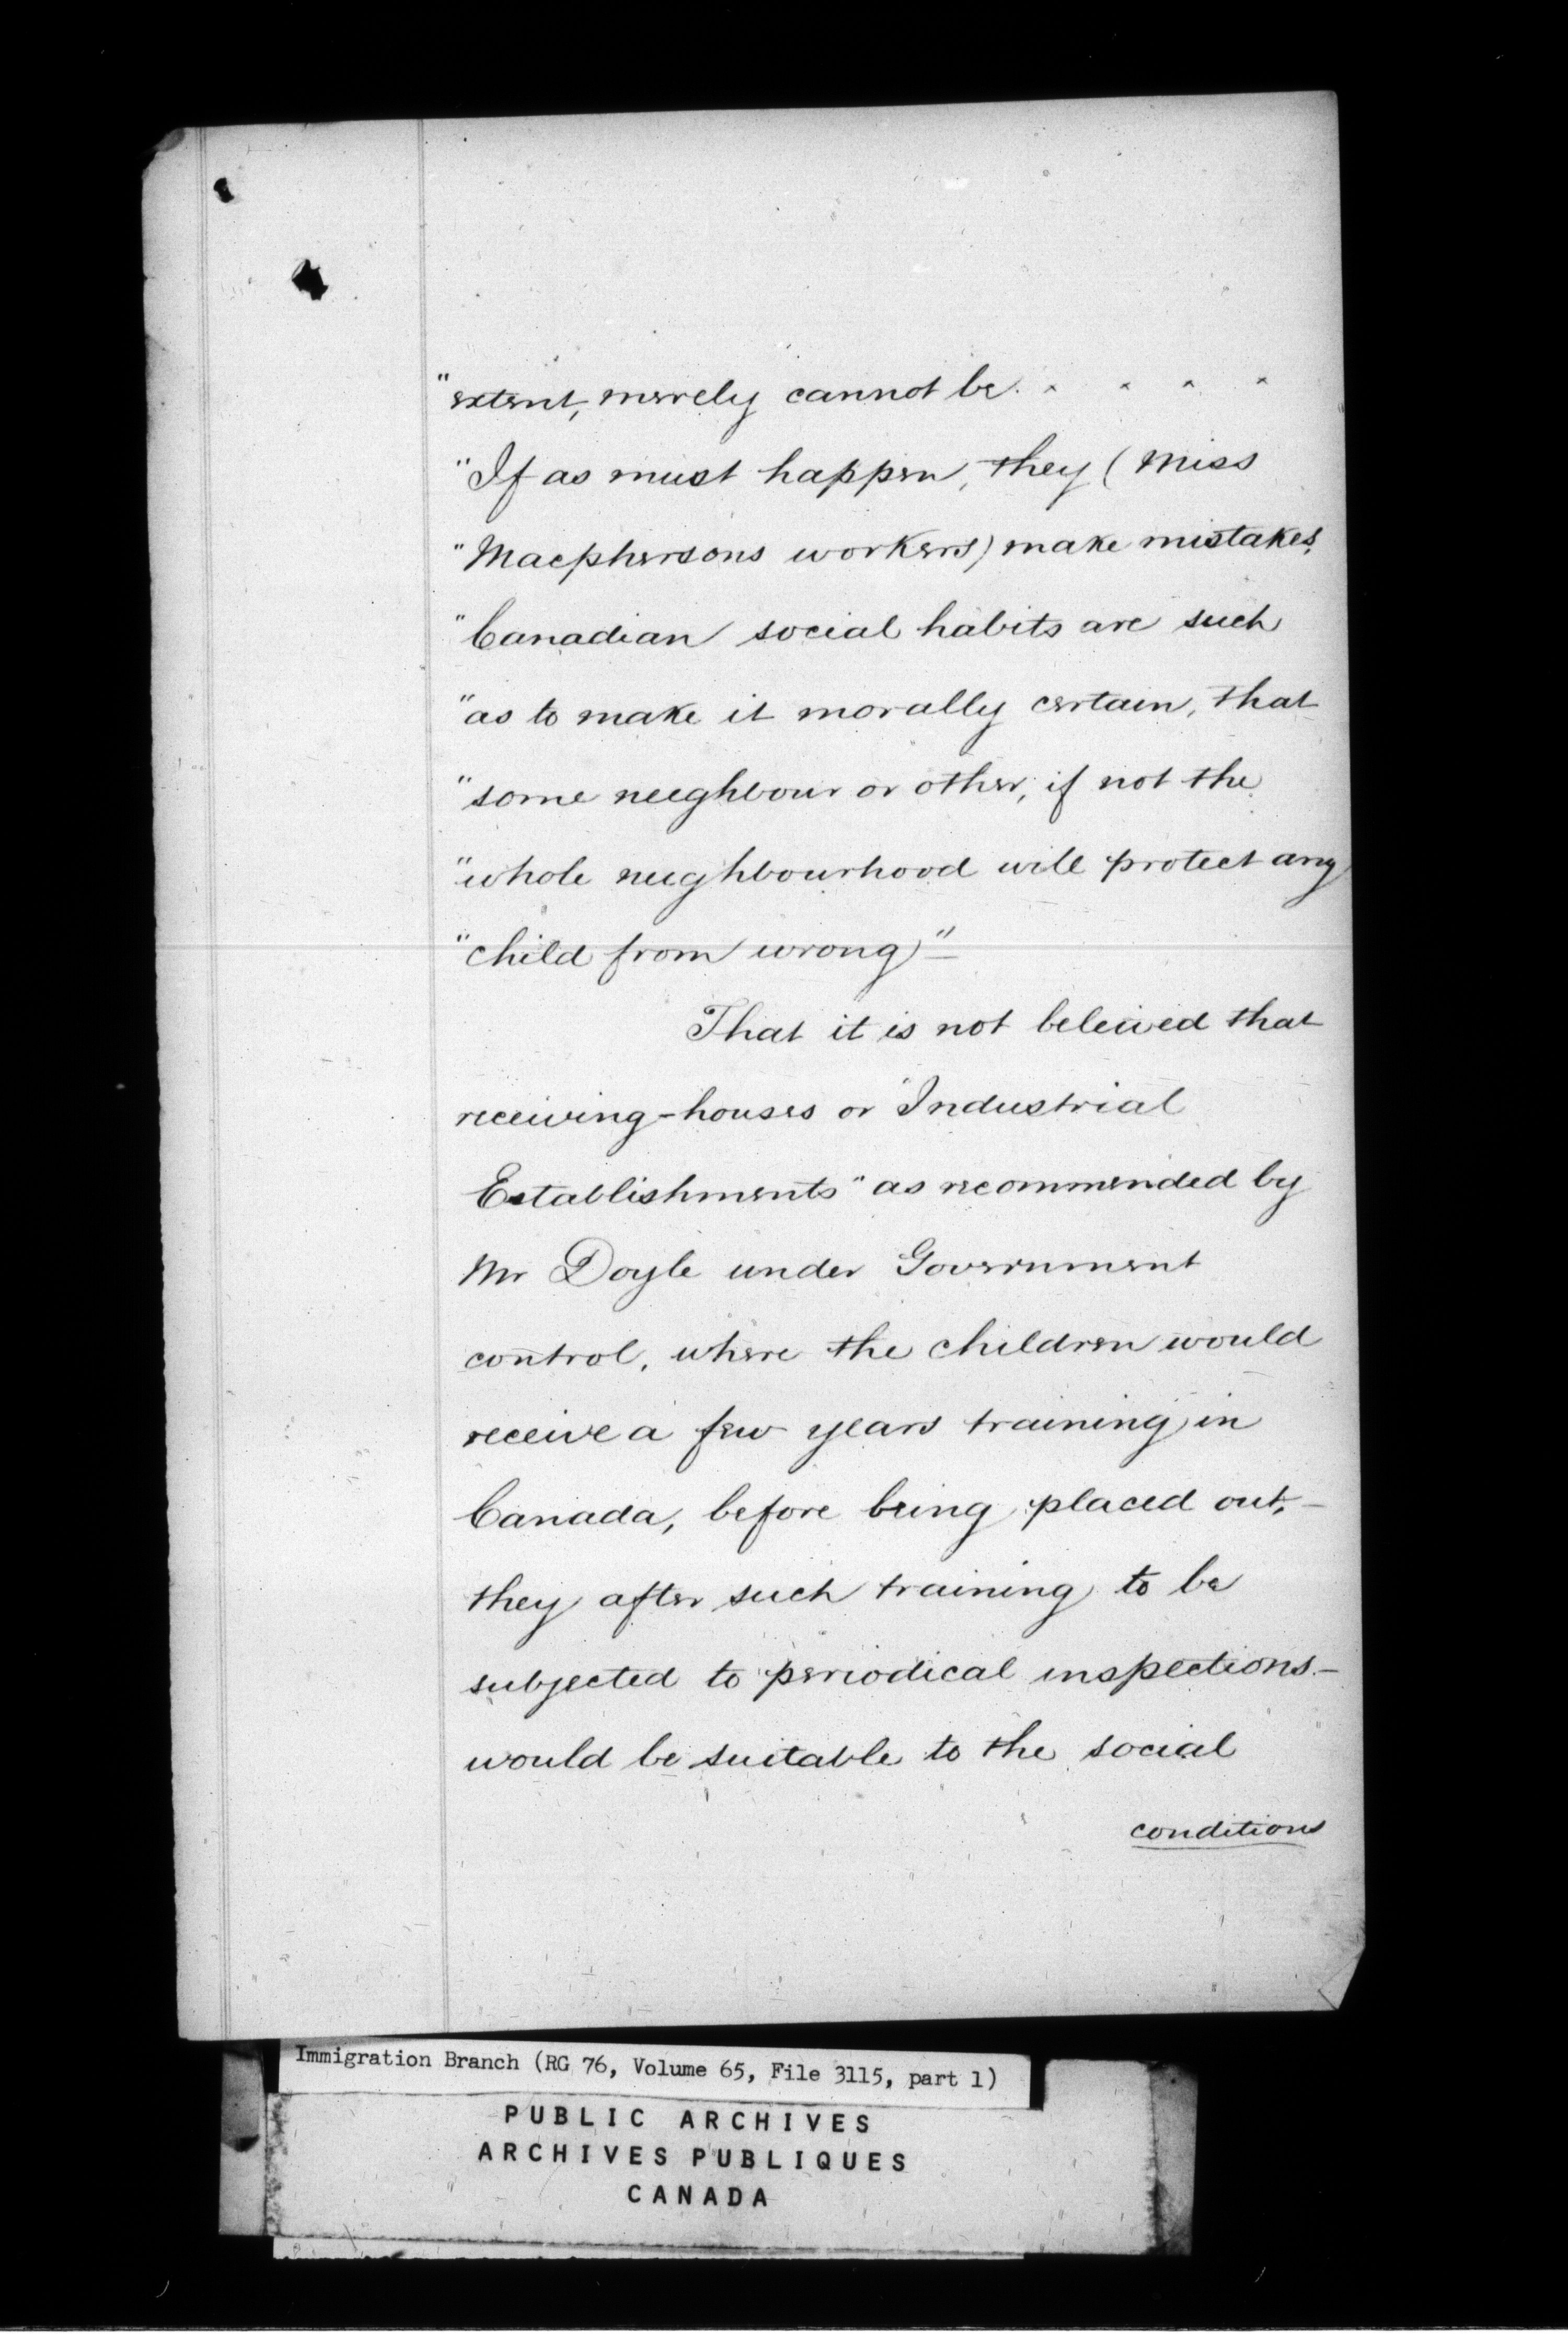 "extent, merely cannot be. " " " "
"If as must happen, they (Miss
"Macphersons workers) make mistakes,
"Canadian social habits are such
"as to make it morally certain, that
"some neighbour or other, if not the
"whole neighbourhood will protect any
"child from wrong"—
That it is not beleived that
receiving-houses or "Industrial
Establishments" as recommended by
Mr Doyle under Government
control, where the children would
receive a few years training in
Canada, before being placed out,—
they after such training to be
subjected to periodical inspections.—
would be suitable to the social
conditions
Immigration Branch (RG 76, Volume 65, File 3115, part 1)
PUBLIC ARCHIVES
ARCHIVES PUBLIQUES
CANADA